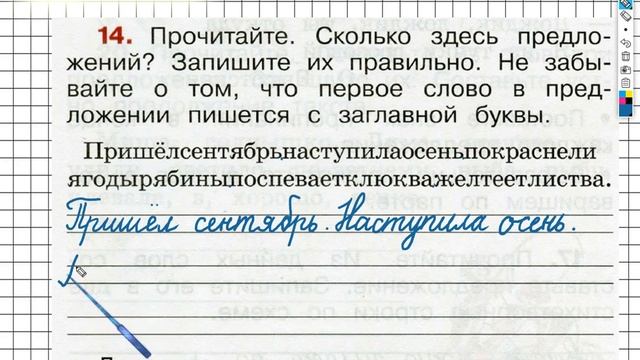 14. Прочитайте. Сколько здесь предло-
жений? Запишите их правильно. Не забы-
вайте о том, что первое слово в пред-
ложении пишется с заглавной буквы.
Пришёлсентябрьнаступилаосеньпокраснели
ягодырябиныпоспеваетклюкважелтеетлиства.
Пришёл сентябрь. Наступила осень.